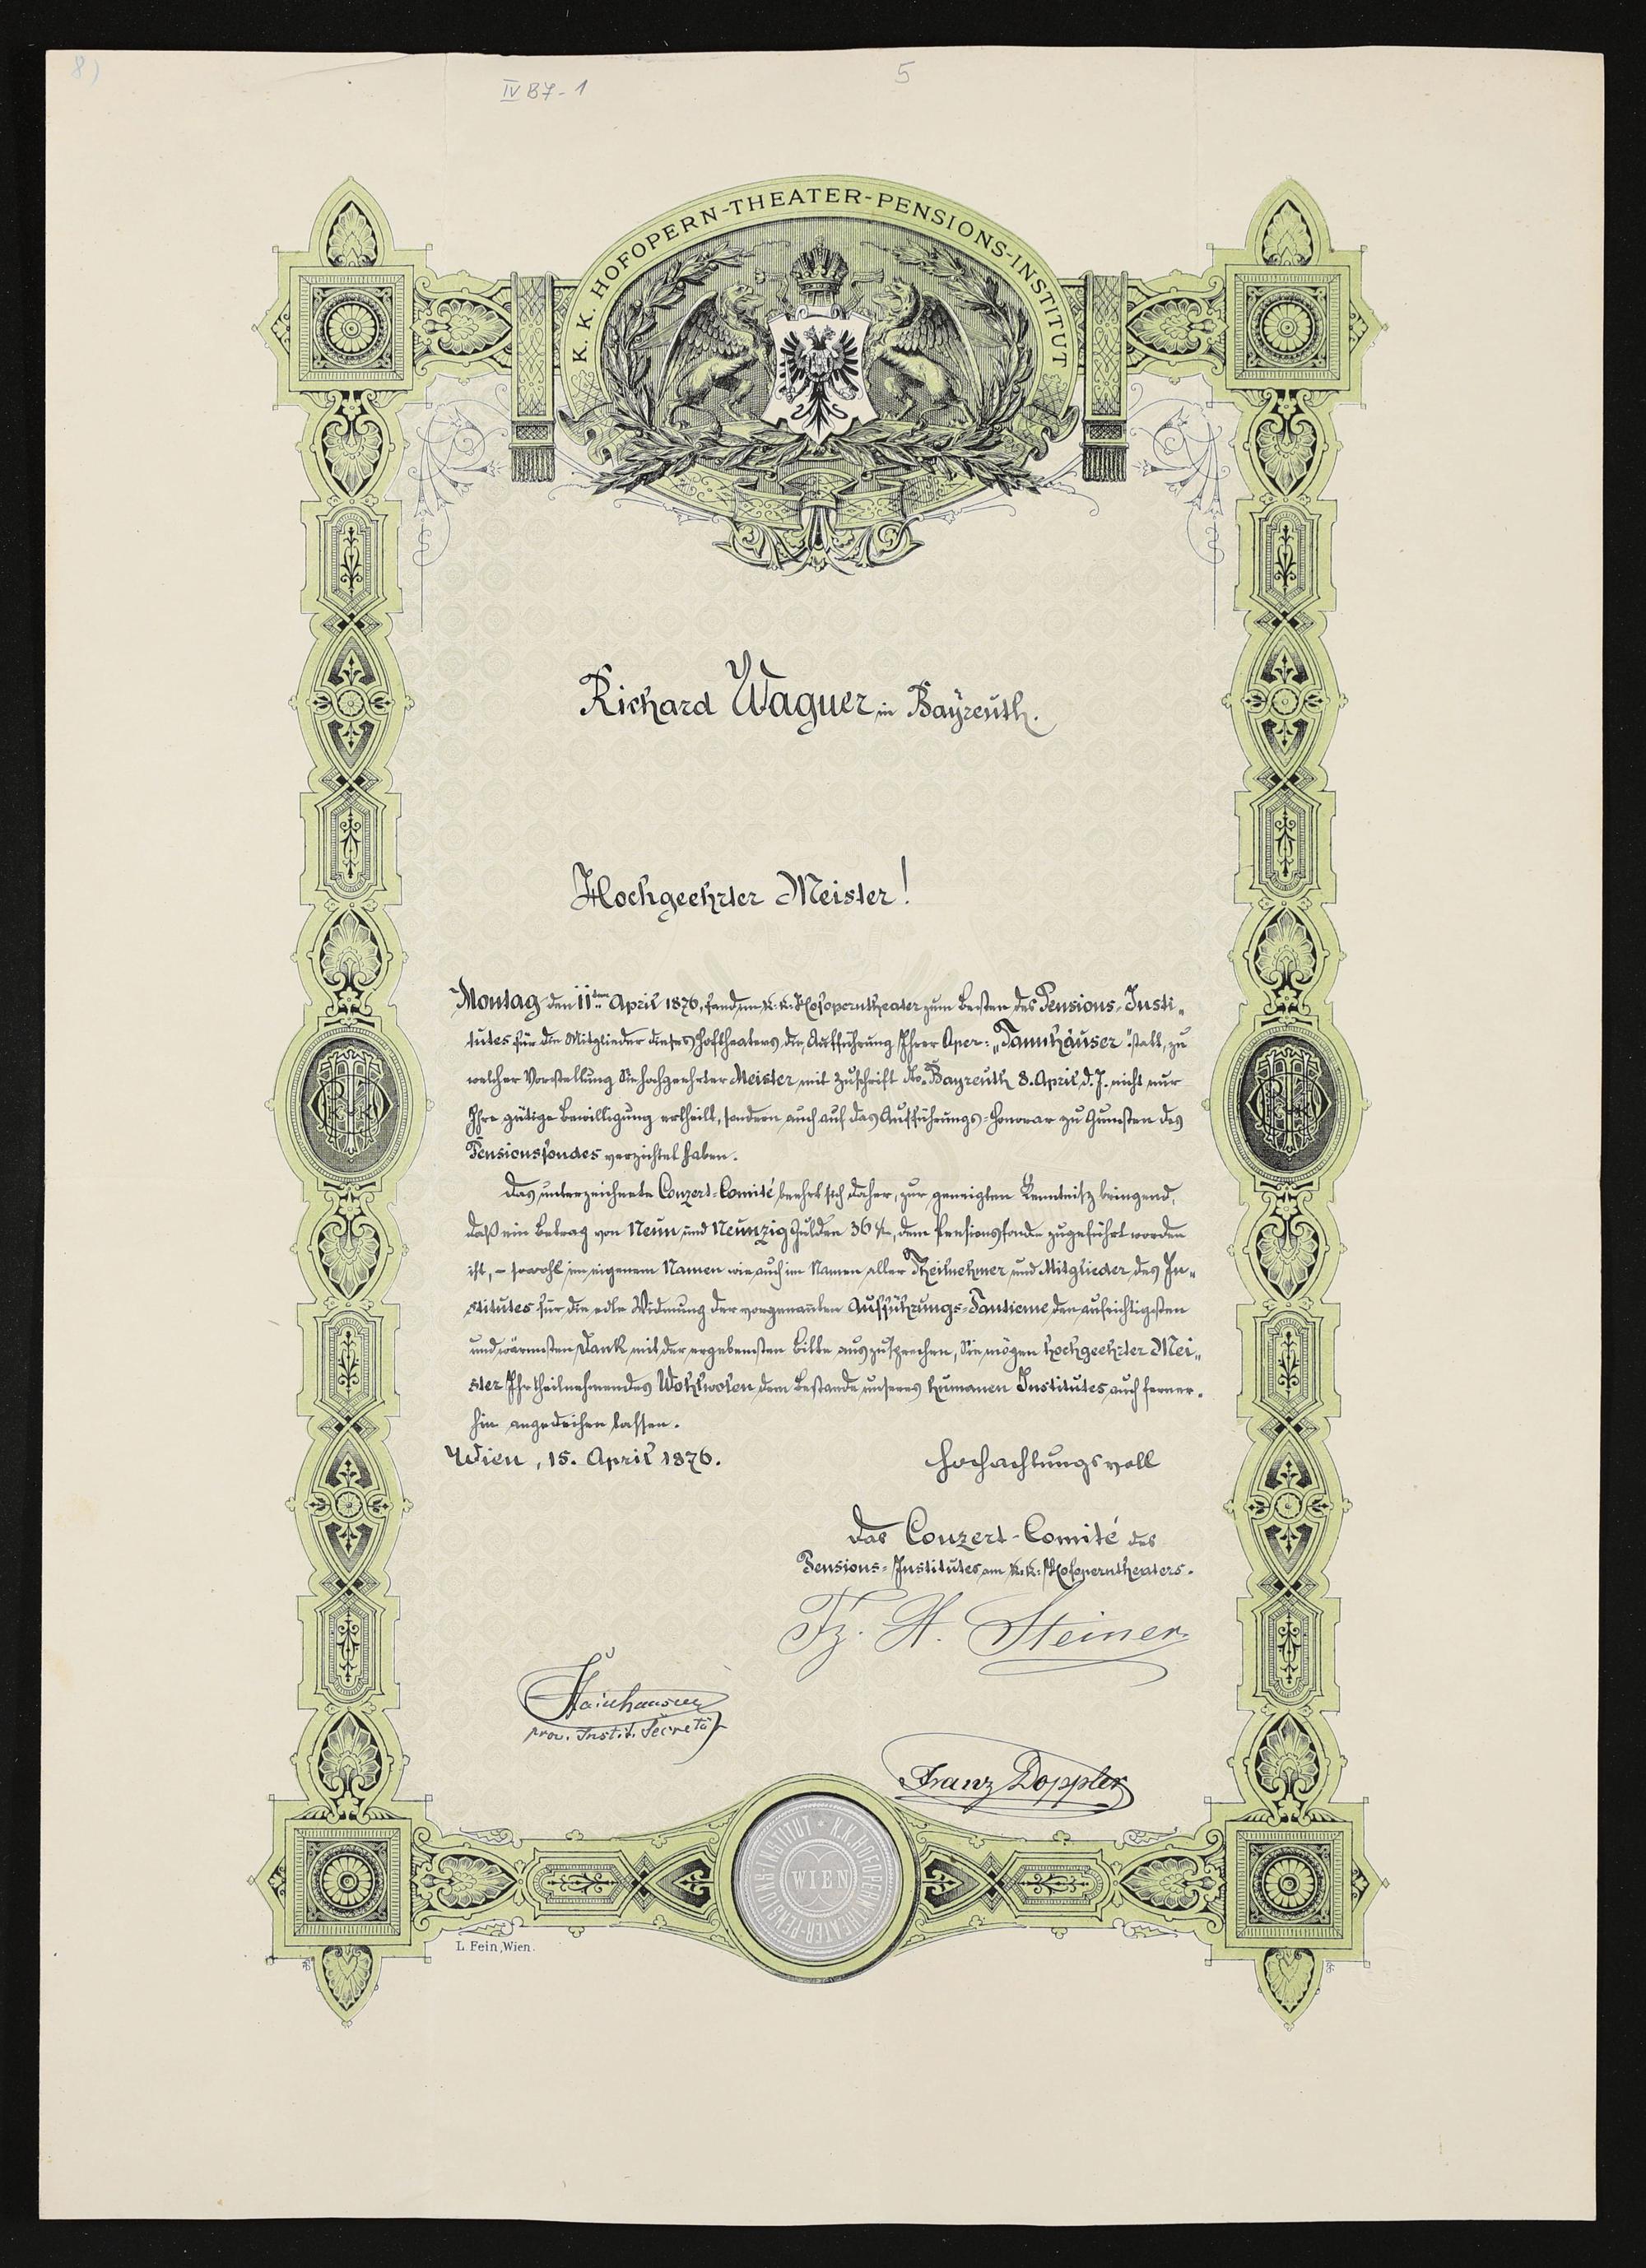 8)
IV B7-1
5
K. K. HOFOPERN-THEATER-PENSIONS-INSTITUT
Richard Wagner in Bayreuth.
Hochgeehrter Meister!
Montag den 11ten April 1876, fand im k. k. Hofoperntheater zum Besten des Pensions-Insti„
tutes für die Mitglieder dieses Hoftheaters, die Aufführung Ihrer Oper: „Tannhäuser" statt, zu
welcher Vorstellung Sie hochgeehrter Meister mit Zuschrift dto. Bayreuth 8. April d. J. nicht nur
Ihre gütige Bewilligung ertheilt, sondern auch auf das Aufführungs=Honorar zu Gunsten des
Pensionsfondes verzichtet haben.
Das unterzeichnete Conzert=Comité beehrt sich daher, zur geneigten Kenntniß bringend,
daß ein Betrag von Neun und Neunzig Gulden 36 kr, dem Pensionsfonde zugeführt worden
ist, – sowohl im eigenem Namen wie auch im Namen aller Theilnehmer und Mitglieder des In„
stitutes für die edle Widmung der vorgenannten Aufführungs=Tantieme den aufrichtigsten
und wärmsten Dank mit der ergebensten Bitte auszusprechen, Sie mögen hochgeehrter Mei„
ster Ihr theilnehmendes Wohlwolen dem Bestande unseres humanen Institutes auch ferner.
hin angedeihen lassen.
Wien, 15. April 1876.
Hochachtungsvoll
Das Conzert-Comité des
Pensions=Institutes am k. k. Hofoperntheaters.
Fz. H. Steiner
Hainhausen
prov. Instit. Secretär
Franz Doppler
K. K. HOFOPERN THEATER-PENSIONS INSTITUT
WIEN
L. Fein, Wien.